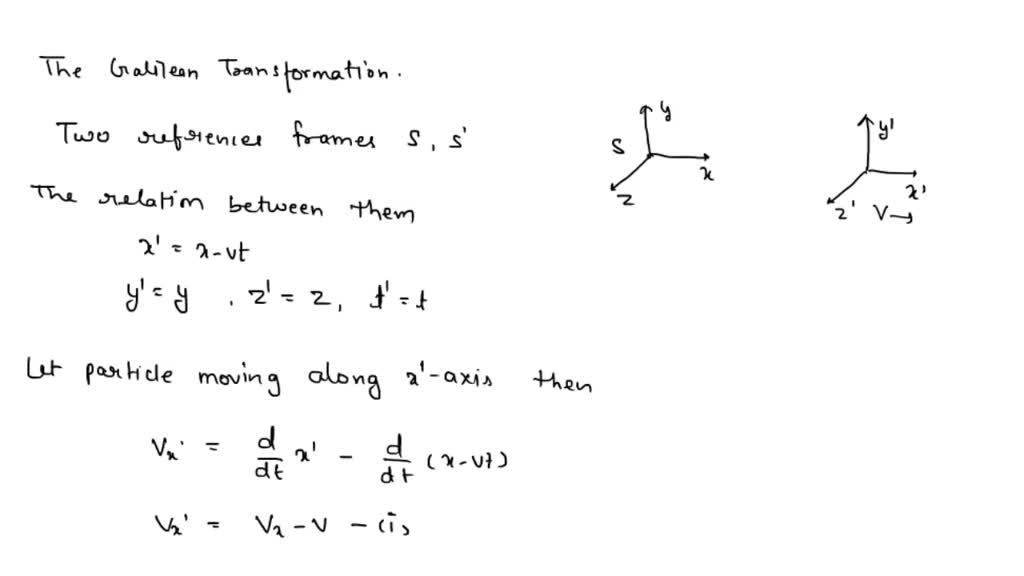 The Galilean Transformation.
Two references frames S, S'
The relation between them
x' = x - vt
y' = y , z' = z, t' = t
Let particle moving along x'-axis then
Vx' = d/dt x' - d/dt (x - vt)
Vx' = Vx - V - (i)
S y x z
y' x' z' V→